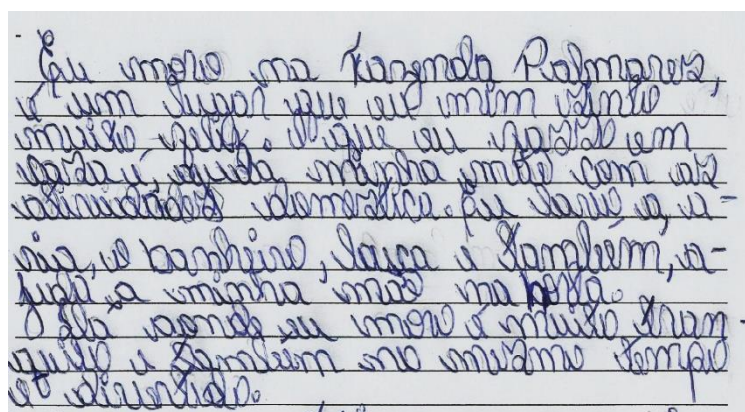 Eu moro na Fazenda Palmares,
é um lugar que eu mim sinto
muito feliz. O que eu fasso em
caza é, ajuda minha mãe com as
atividades domestica. Eu lavo a, 
o banheiro, louça e também, a-
juda a minha mãe na horta.
Lá aonde eu moro é muito tran-
quilo e também no mesmo tempo
é divertido.